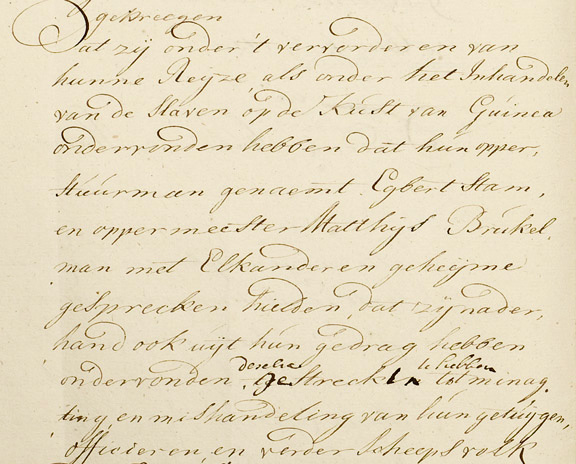 gekreegen
Dat zij onder 't vervorderen van
hunne Reyze, als onder het Inhandelen
van de Slaven op de Kust van Guinea
ondervonden hebben dat hun opper,
stuurman genaemt Egbert Stam,
en oppermeester Matthijs Brukel,
man met Elkanderen geheijme
gesprecken hielden, dat zij nader,
hand ook uijt hun gedrag hebben
ondervonden deselve te hebben
gestreckt tot minag,
ting, en mishandeling van hun getuijgen,
officieren, en verder scheeps volk